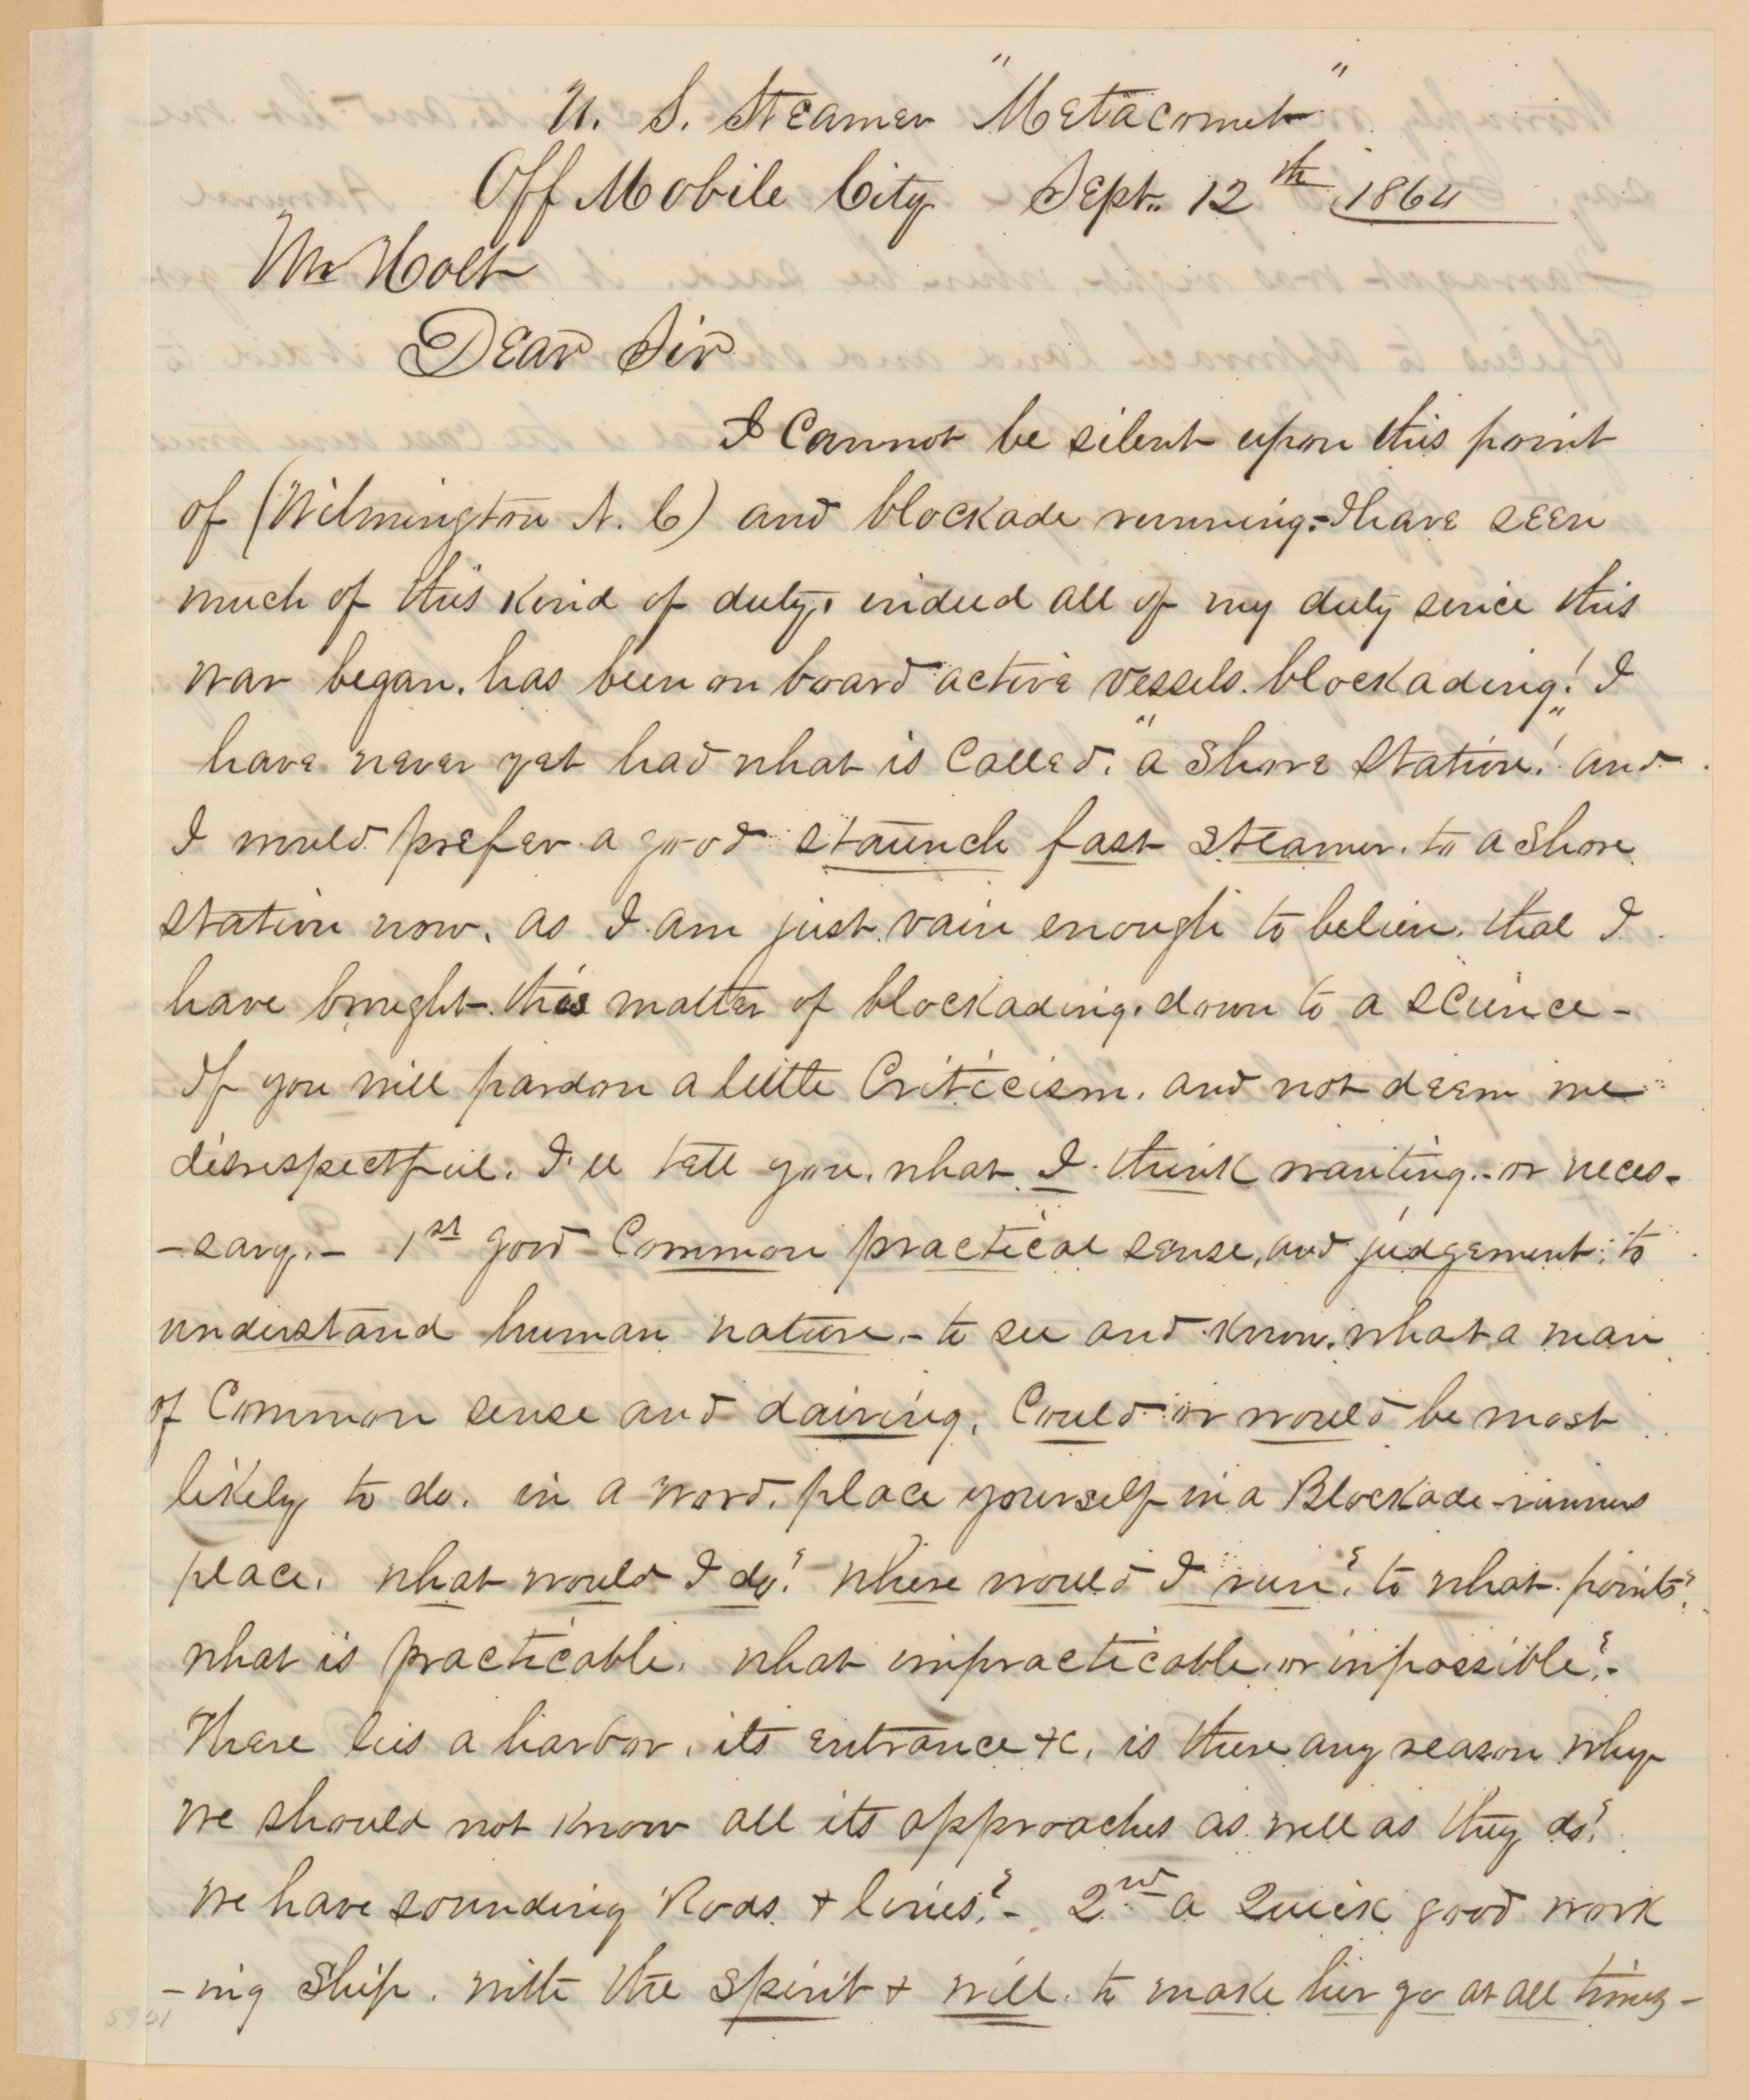 U. S. Steamer "Metacomet"
Off Mobile City Sept. 12th 1864
Mr Holt
Dear Sir
I Cannot be silent upon this point
of (Wilmington N. C) and blockade running.- I have seen
much of this kind of duty, indeed all of my duty since this
war began, has been on board active vessels. blockading! I
have never yet had what is Called, "a Shore Station"! and
I would prefer a good staunch fast steamer, to a Shore
station now, as I am just vain enough to believe, that I
have brought this matter of blockading, down to a science -
If you will pardon a little Criticism, and not deem me
disrespectful, I'll tell you, what I think wanting.- or neces-
-sary.- 1st good Common practical sense, and judgement; to
understand human nature,- to see and know, what a man
of Common sense and dairing, Could or would be most
likely to do, in a word, place yourself in a Blockade-runners
place, what would I do? where would I run? to what points?
what is practicable, what impracticable, or impossible?-
There lies a harbor, its entrance &c, is there any reason why
we should not know all its approaches as well as they do?
We have sounding Rods & lines?- 2nd a Quick good work
-ing Ship, with the Spirit & will to make her go at all times -
5901